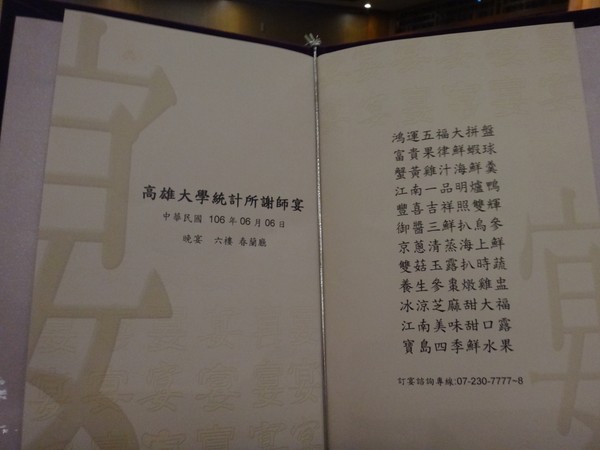 高雄大學統計所謝師宴
中華民國 106 年 06 月 06 日
晚宴 六樓 春蘭廳
鴻運五福大拼盤
富貴果律鮮蝦球
蟹黃雞汁海鮮羹
江南一品明爐鴨
豐喜吉祥照雙輝
御醬三鮮扒烏參
京蔥清蒸海上鮮
雙菇玉露扒時蔬
養生參棗燉雞盅
冰涼芝麻甜大福
江南美味甜口露
寶島四季鮮水果
訂宴諮詢專線:07-230-7777~8
宴